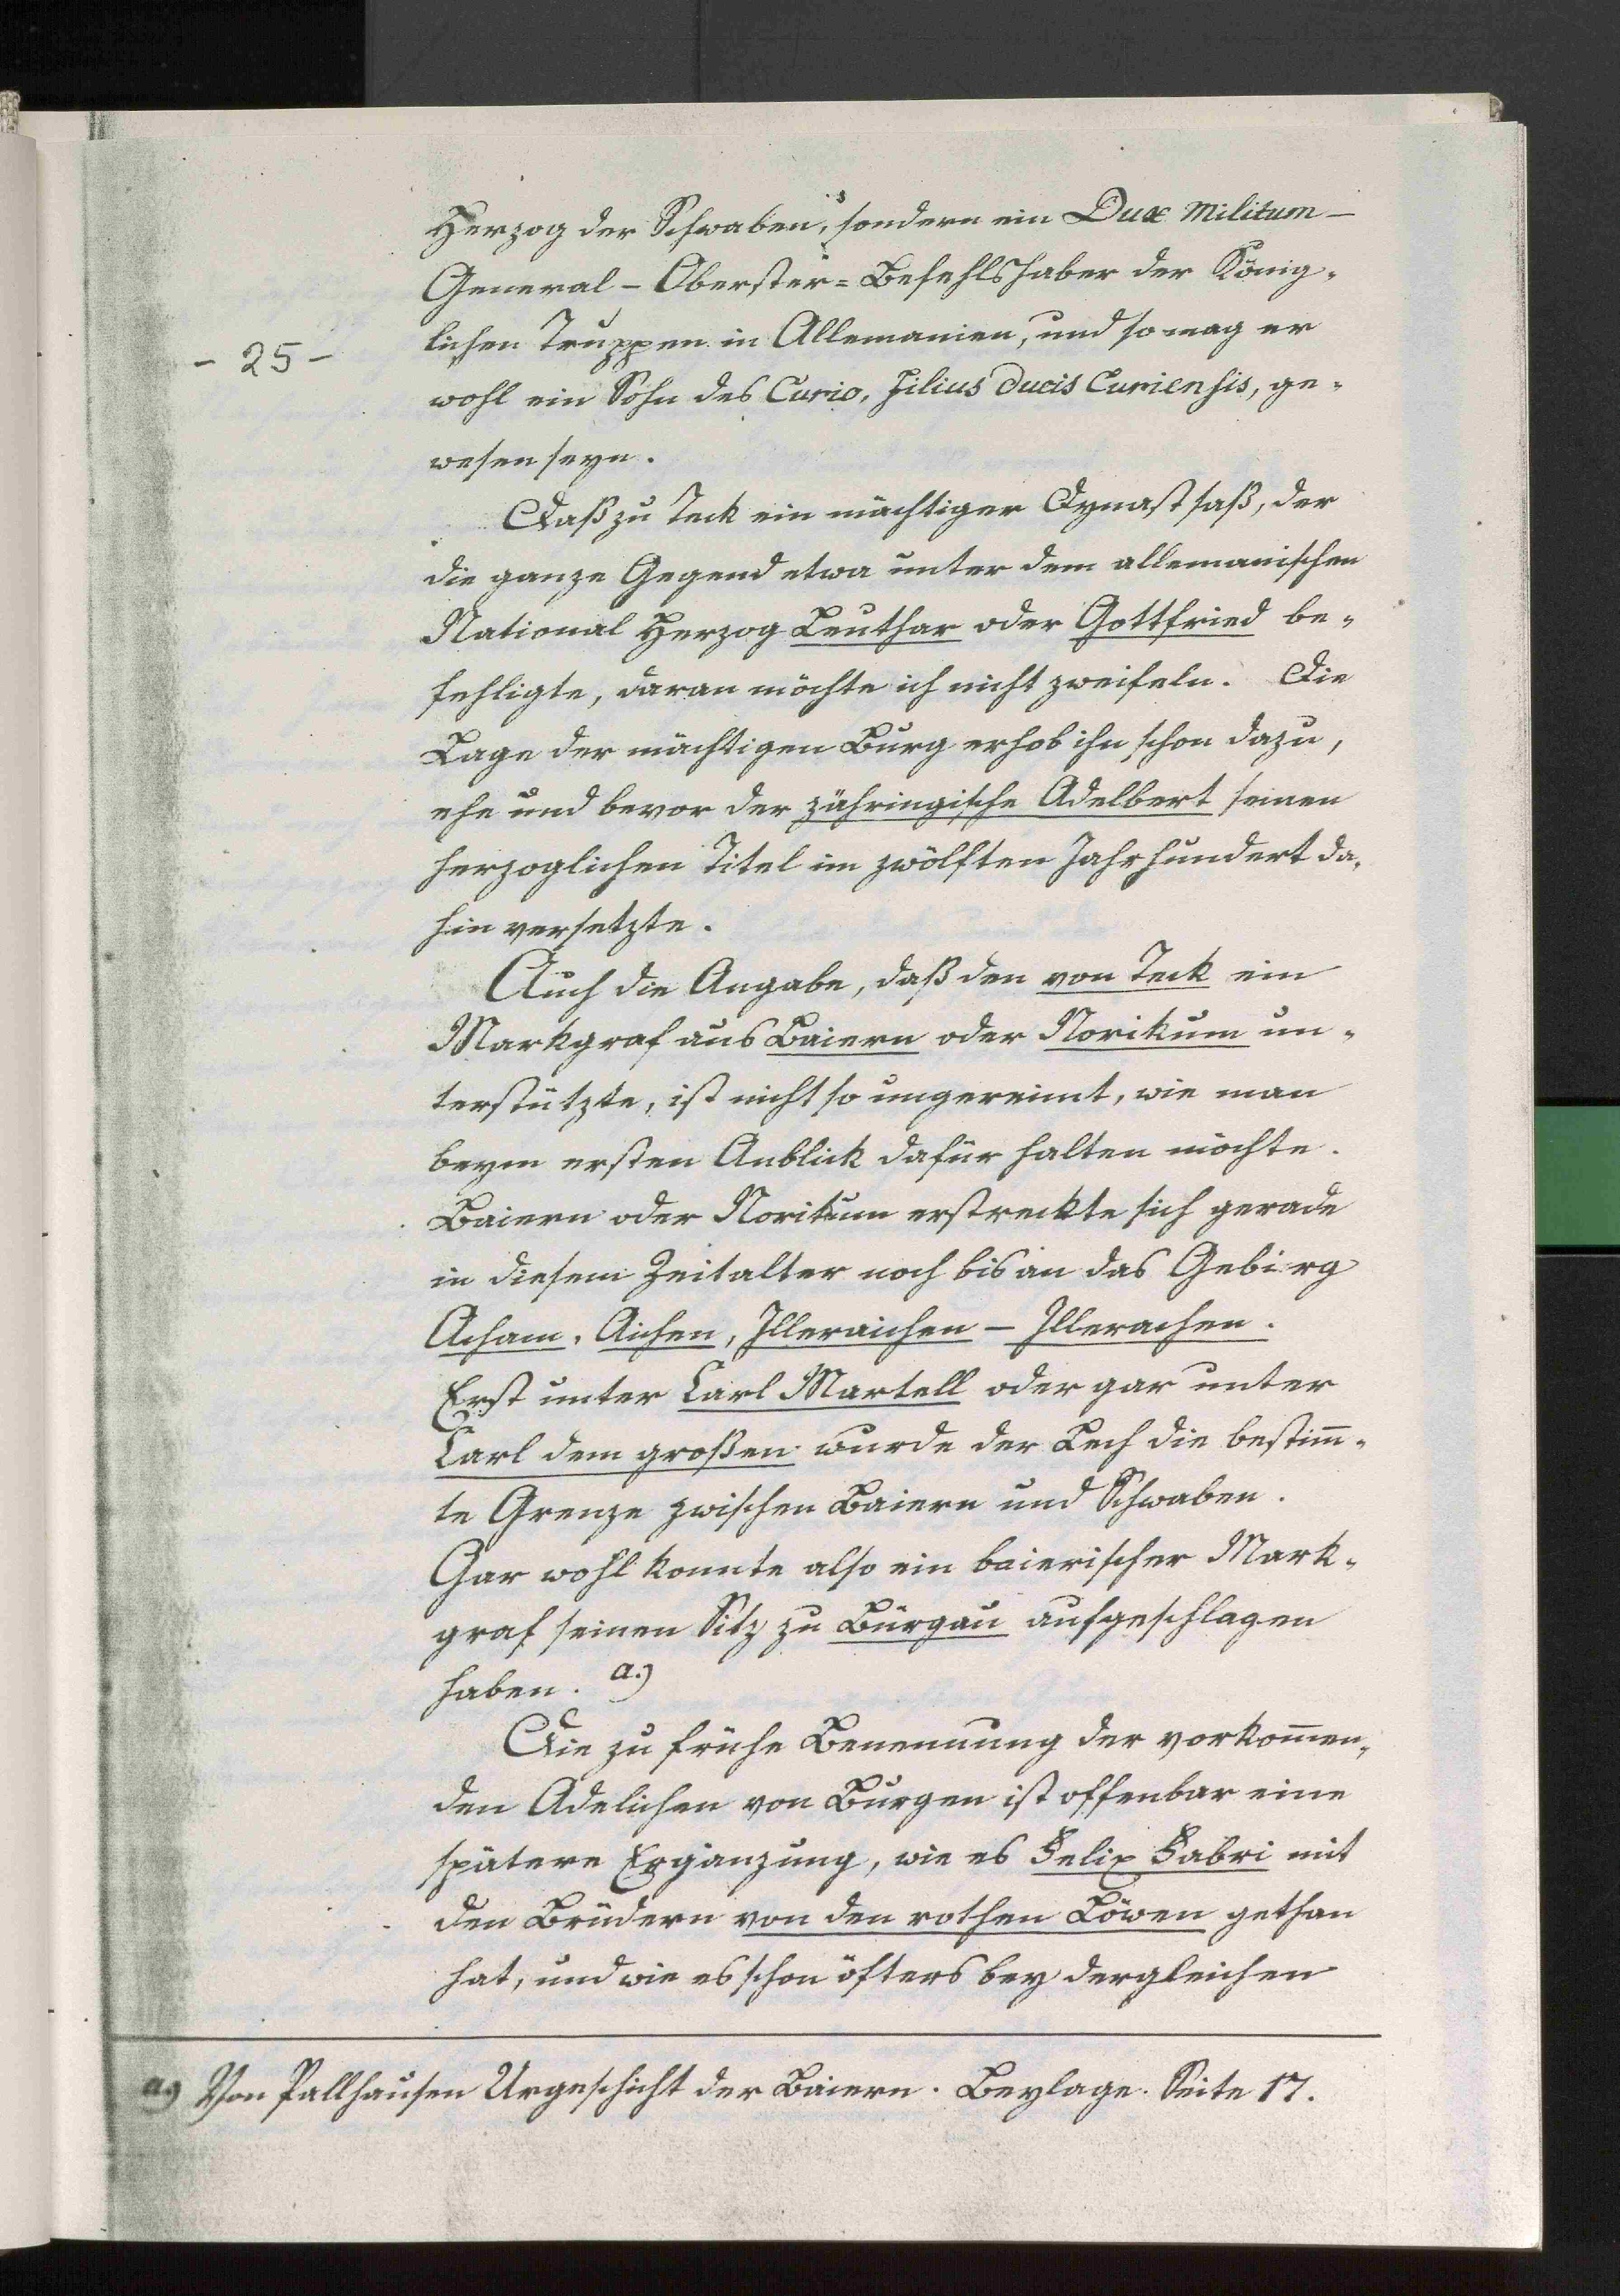 Herzog der Schwaben, sondern ein Dux Militum –
General – Oberster = Befehlshaber der König-
lichen Truppen in Allemanien, und so mag er
- 25 -
wohl ein Sohn des Curio, Filius Ducis Curiensis, ge-
wesen seyn.
Daß zu Teck ein mächtiger Dynast saß, der
die ganze Gegend etwa unter dem allemanischen
National Herzog Leuthar oder Gottfried be-
fehligte, daran möchte ich nicht zweifeln. Die
Lage der mächtigen Burg erhob ihn schon dazu,
ehe und bevor der zähringische Adelbert seinen
herzoglichen Titel im zwölften Jahrhundert da-
hin versetzte.
Auch die Angabe, daß den von Teck ein
Markgraf aus Baiern oder Norikum un-
terstützte, ist nicht so ungereimt, wie man
beym ersten Anblick dafür halten möchte.
Baiern oder Norikum erstreckte sich gerade
in diesem Zeitalter noch bis an das Gebirg
Acham, Aichen, Illeraichen – Illerachen.
Erst unter Carl Martell oder gar unter
Carl dem großen wurde der Lech die bestim̅-
te Grenze zwischen Baiern und Schwaben.
Gar wohl konnte also ein baierischer Mark-
graf seinen Sitz zu Burgau aufgeschlagen
haben. a.)
Die zu frühe Benennung der vorkom̅en-
den Adelichen von Burgen ist offenbar eine
spätere Ergänzung, wie es Felix Fabri mit
den Brüdern von den rothen Löwen gethan
hat, und wie es schon öfters bey dergleichen
a.) Von Pallhausen Urgeschicht der Baiern. Beylage. Seite 17.